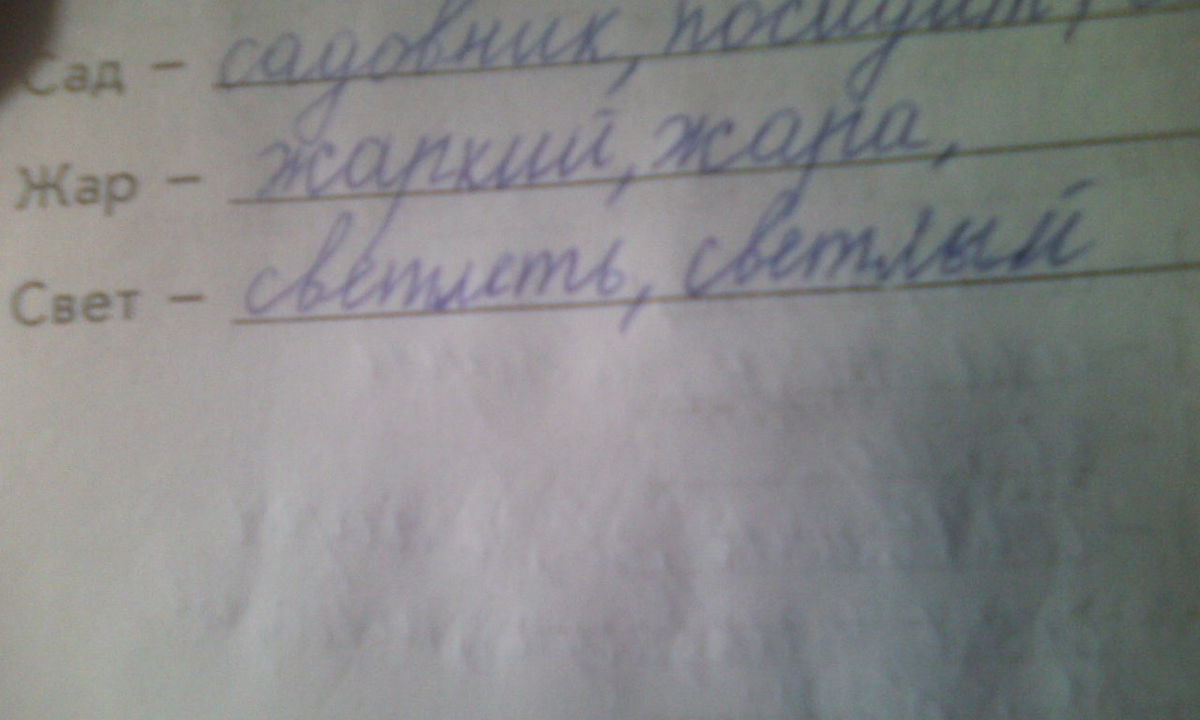 Сад – садовник,
Жар – жаркий, жара,
Свет – светлеть, светлый